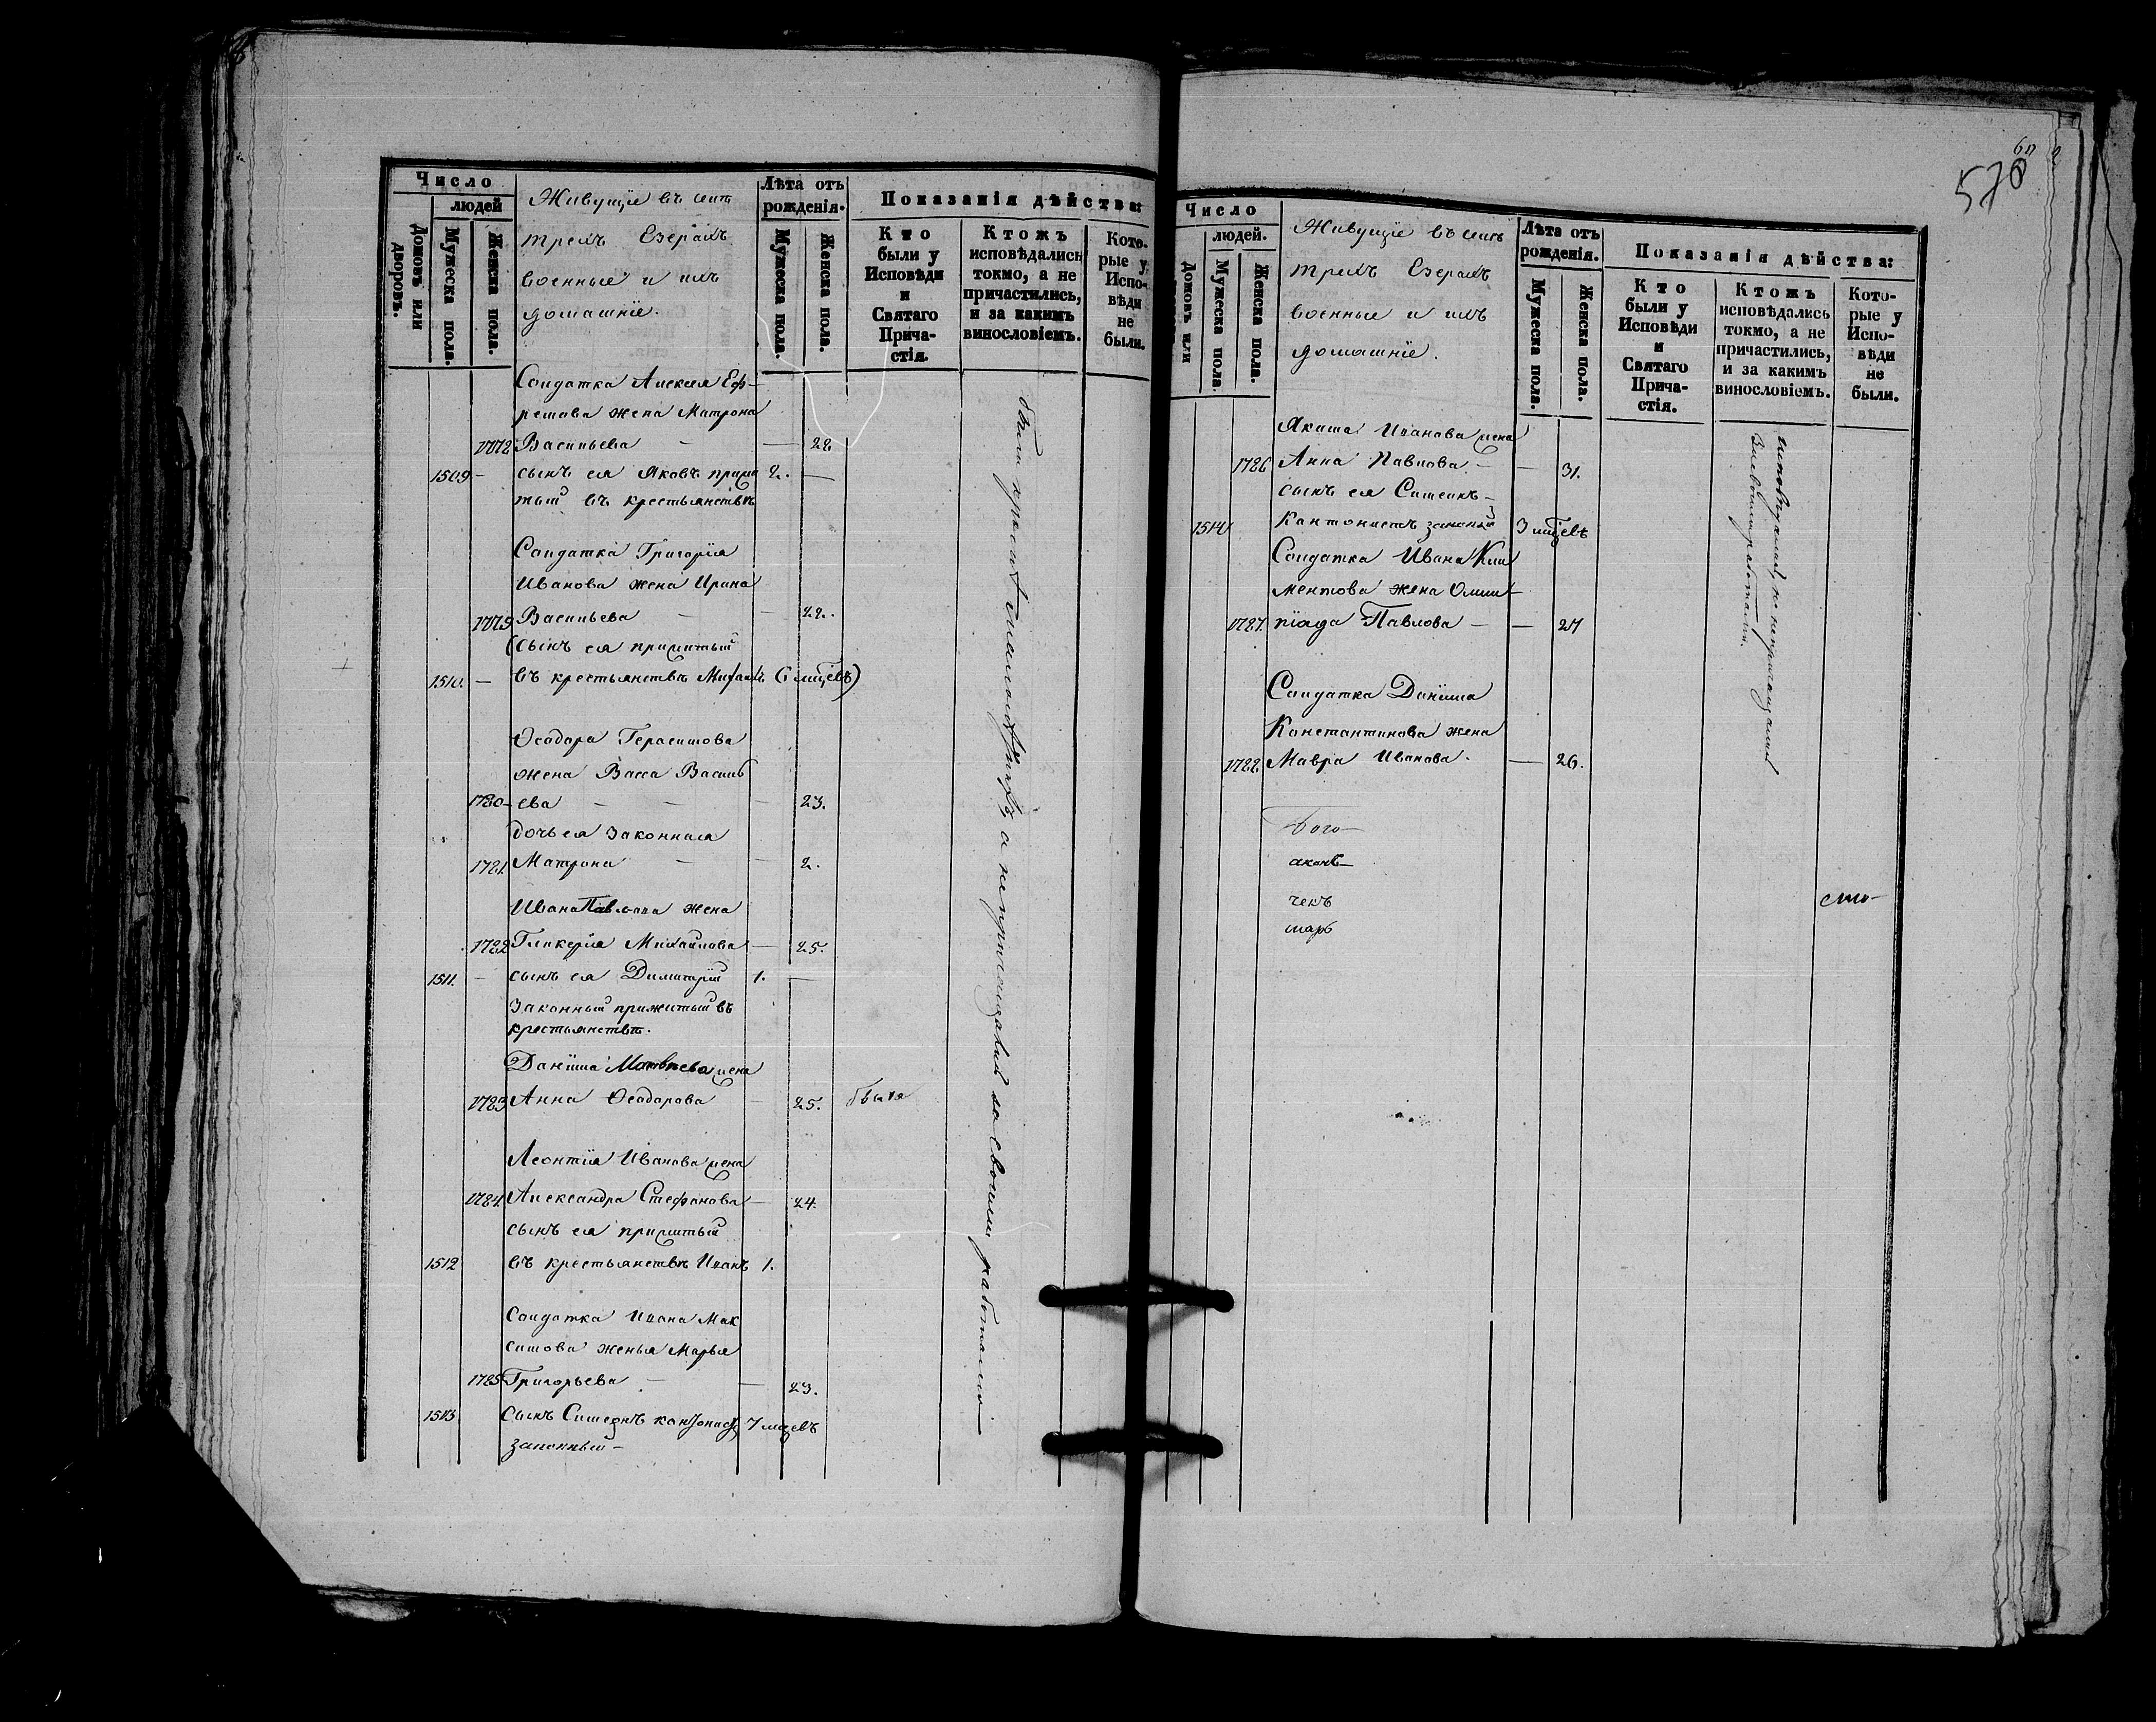 Число
людей
Домовъ или дворовъ.
Мужеска пола.
Женска пола.
Живущіе въ сихъ
трехъ Езерахъ
военные и ихъ
домашніе.
Лѣта отъ
рожденія.
Мужеска пола.
Женска пола.
Показанія дѣйства:
Кто
были у
Исповѣди
и
Святаго
Прича-
стія.
Ктожъ
исповѣдались
токмо, а не
причастились,
и за какимъ
винословіемъ.
Кото-
рые у
Испо-
вѣди
не
были.
Солдатка Алексея Еф-
ремова жена Матрона
1778 Васильева — — 22
1509 — сынъ ея Яковъ прижи 2. —
тый въ крестьянствѣ
Солдатка Григорія
Иванова жена Ирина
1779 Васильева — — 22.
(сынъ ея прижитый
1510. — въ крестьянствѣ Михаилъ 6 мцевъ)
Ѳеодора Герасимова
жена Васса Василь
1780 — ева — — — 23.
дочь ея законная
1781. Матрона — — 2.
Ивана Павлова жена
1782 Гликерія Михайлова — 25.
1511. — сынъ ея Димитрій 1. —
Законный прижитый въ
крестьянствѣ.
Даніила Матвѣева жена
1783 Анна Ѳеодорова — 25. была
Леонтія Иванова жена
1784. Александра Стефанова — 24.
сынъ ея прижитый
1512 въ крестьянствѣ Иванъ 1.
Солдатка Ивана Мак
симова женыя Марья
1785 Григорьева — — 23.
1513 Сынъ Симеонъ кантонистъ 7 мцевъ
законный —
а не причащались за своими работами —
578
Число
людей.
Домовъ или
Мужеска пола.
Женска пола.
Живущіе въ сихъ
трехъ Езерахъ
военные и ихъ
домашніе.
Лѣта отъ
рожденія.
Мужеска пола.
Женска пола.
Показанія дѣйства:
Кто
были у
Исповѣди
и
Святаго
Прича-
стія.
Ктожъ
исповѣдались
токмо, а не
причастились,
и за какимъ
винословіемъ.
Кото-
рые у
Испо-
вѣди
не
были.
Якима Иванова жена
1786 Анна Павлова — — 31.
сынъ ея Симеонъ —
1514 Кантонистъ законный 3 мцевъ
Солдатка Ивана Кли
ментова жена Олим—
1787. піада Павлова — — 27
Солдатка Даніила
Константинова жена
1788 Мавра Иванова. — 26.
исповѣдались, не причащались
За своими работами.
Бого—
аковъ—
чекъ